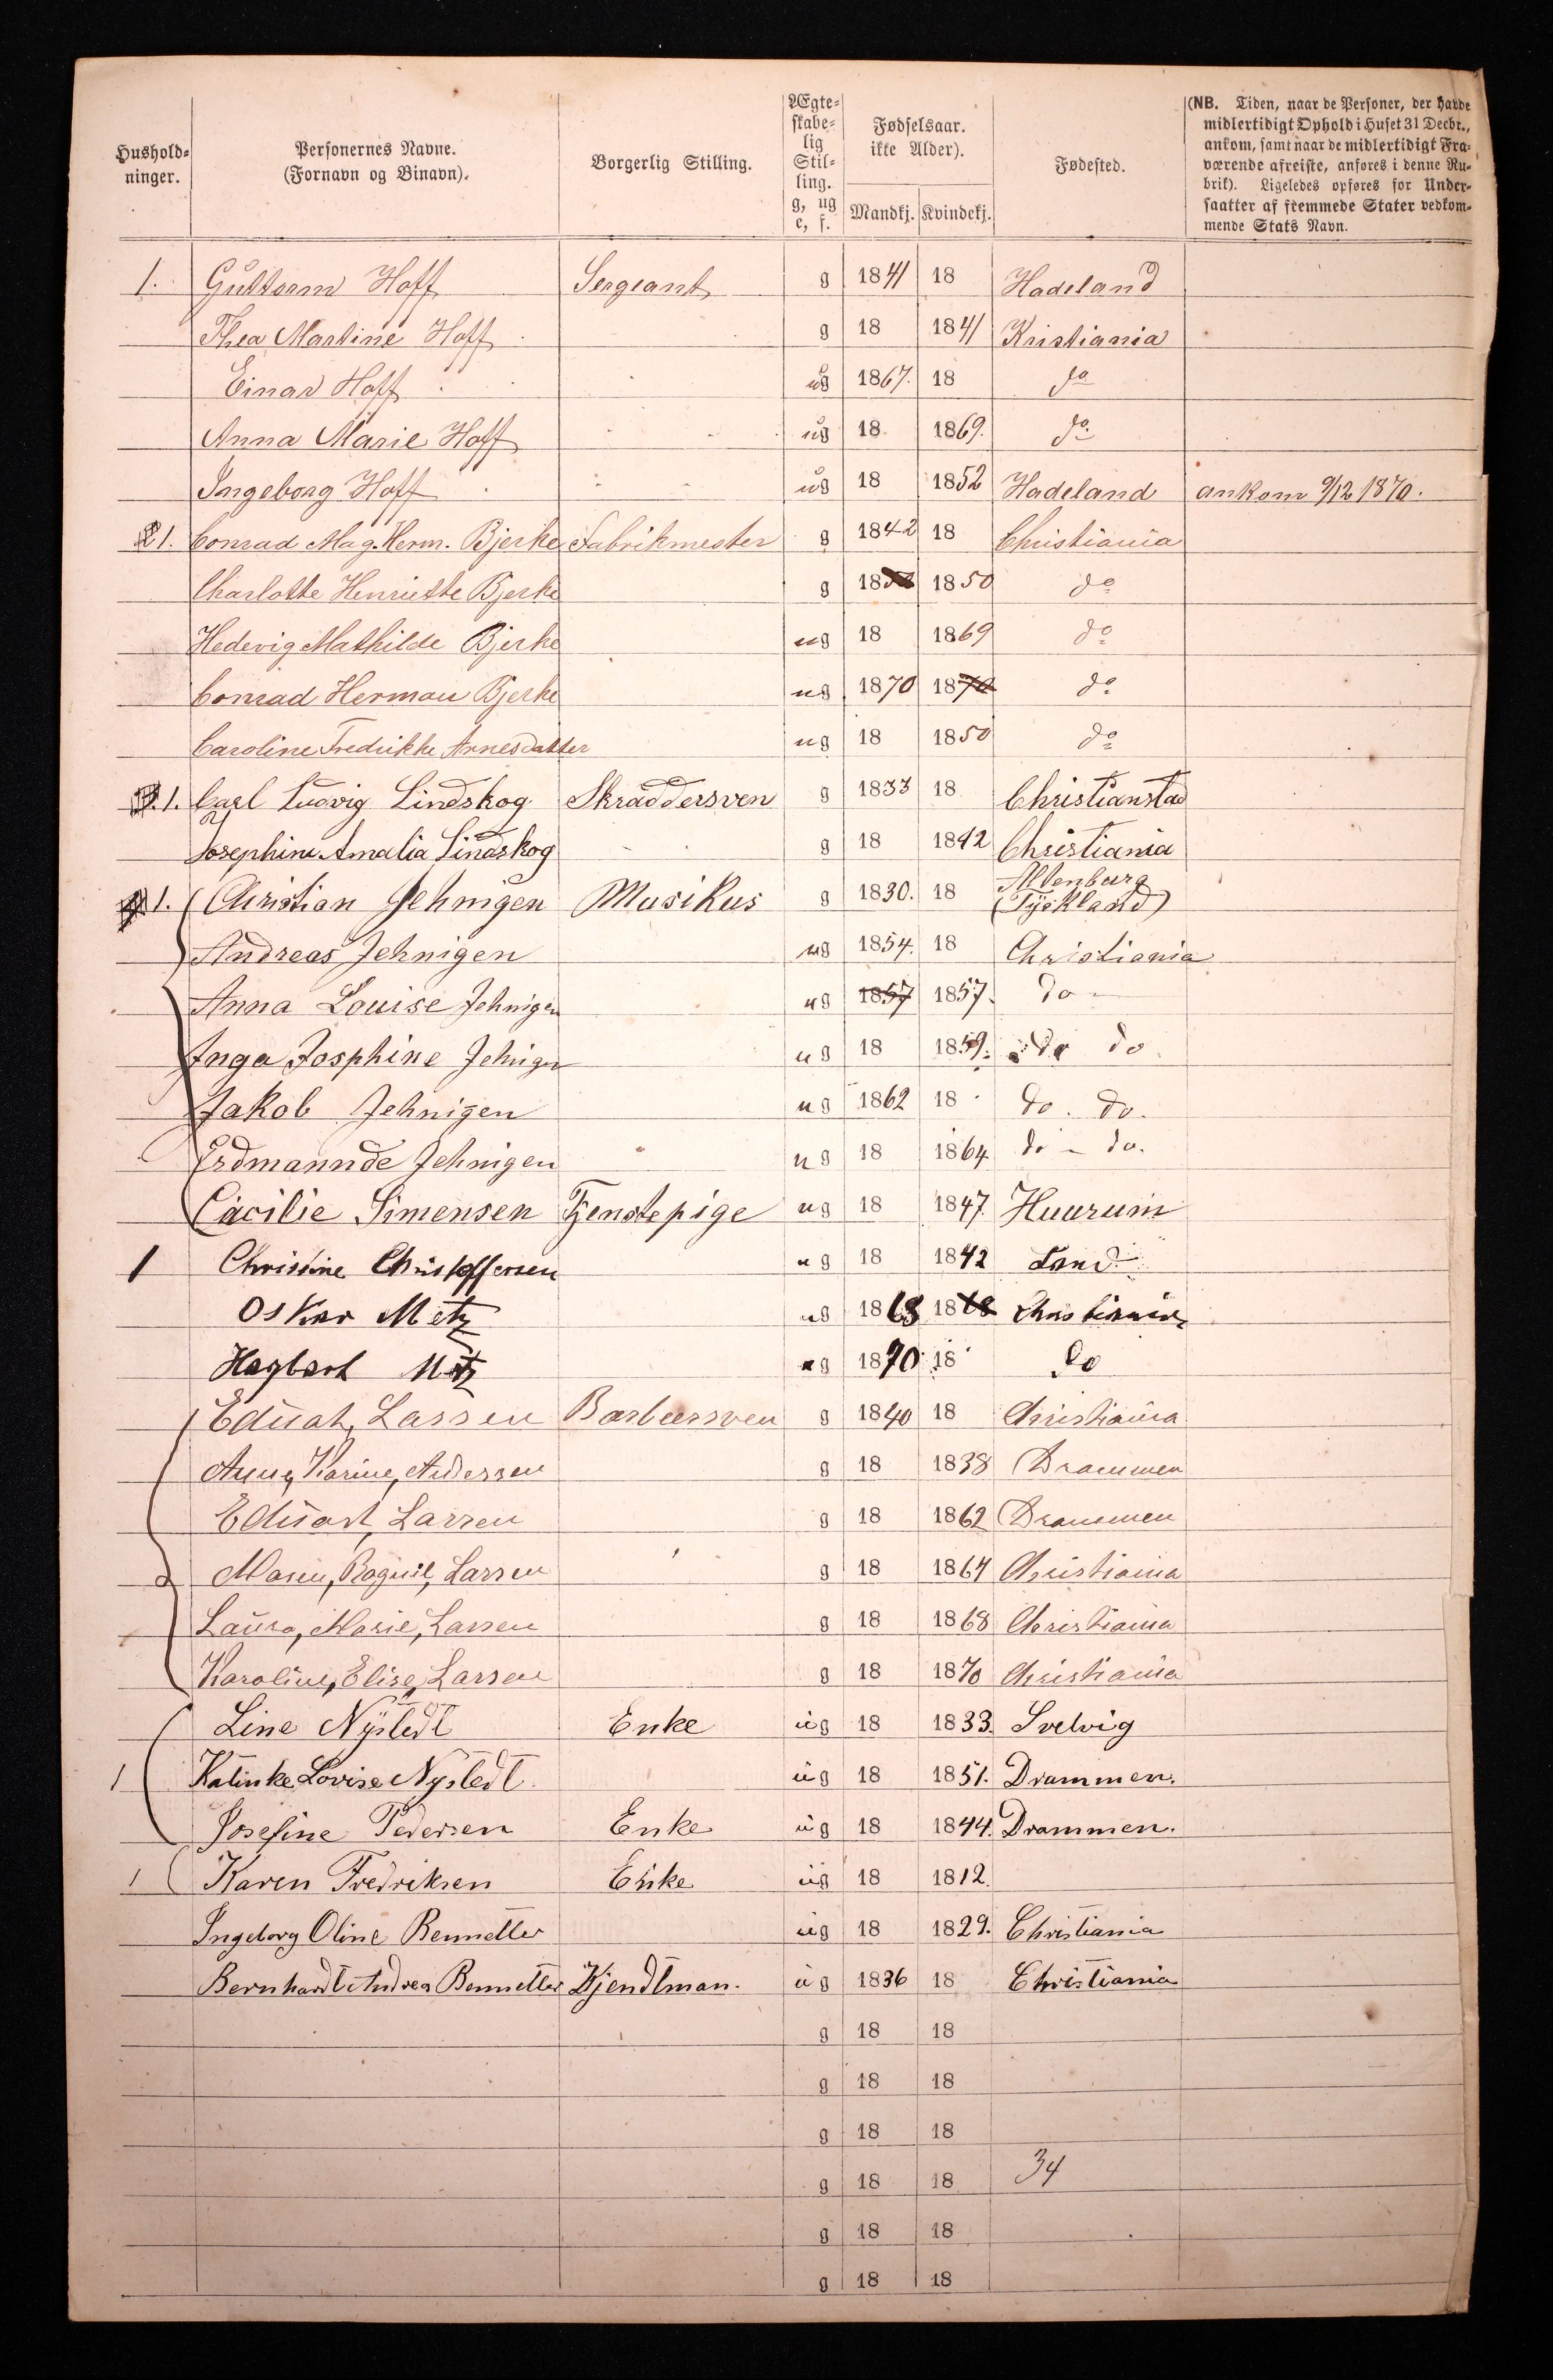 Hushold-ninger. Personernes Navne. (Fornavn og Binavn). Borgerlig Stilling. Ægte-skabe-lig Stil-ling. g, ug e, f. Fødselsaar. ikke Alder). Mandkj. Kvindekj. Fødested.
(NB. Tiden, naar de Personer, der havde
midlertidigt Ophold i Huset 31 Decbr.,
ankom, samt naar de midlertidigt Fra-
værende afreiste, anføres i denne Ru-
brik). Ligeledes opføres for Under-
saatter af fremmede Stater vedkom-
mende Stats Navn.
1. Guttorm Hoff Sergeant g 1841 18 Hadeland
Thea Martine Hoff g 18 1841 Kristiania
Einar Hoff ug 1867. 18 do
Anna Marie Hoff ug 18 1869. do
Ingeborg Hoff ug 18 1852 Hadeland ankom 9/12 1870.
1. Conrad Mag. Herm. Bjerke Fabrikmester g 1842 18 Christiania
Charlotte Henriette Bjerke g 18 1850 do
Hedevig Mathilde Bjerke ug 18 1869 do
Conrad Herman Bjerke ug 1870 1870 do
Caroline Fredrikke Arnesdatter ug 18 1850 do
1. Carl Ludvig Lindskog Skræddersven g 1833 18 Christianstad
Josephine Amalia Lindskog g 18 1842 Christiania
1. Christian Jehnigen Musikus g 1830. 18 Altenburg (Tyskland)
Andreas Jehnigen ug 1854. 18 Christiania
Anna Louise Jehnigen ug 1857 1857. do
Inga Josphine Jehnigen ug 18 1859. do do.
Jakob Jehnigen ug 1862 18 do. do.
Erdmannde Jehnigen ug 18 1864 do - do.
Cäcilie Simensen Tjenstepige ug 18 1847. Huurum
1 Christine Christoffersen ug 18 1842 Land
Oskar Metz ug 1868 1868 Christiania
Hagbart Metz ug 1870 18 do
Eduart, Lassen Barbersven g 1840 18 Christiania
Anne, Karine, Andersen g 18 1838 Drammen
Eduart, Larsen g 18 1862 Drammen
Maren, Ragnil, Larsen g 18 1864 Christiania
Laura, Marie, Larsen g 18 1868 Christiania
Karoline, Elise, Larsen g 18 1870 Christiania
Line Nystedt Enke ug 18 1833. Svelvig
1 Katinke Lovise Nystedt ug 18 1851. Drammen.
Josefine Pedersen Enke ug 18 1844. Drammen.
1 Karen Fredriksen Enke ug 18 1812.
Ingeborg Oline Bennetter ug 18 1829. Christiania
Bernhardt Andrea Bennetter Kjendtman. ug 1836 18 Christiania
g 18 18
g 18 18
g 18 18
g 18 18 34
g 18 18
g 18 18